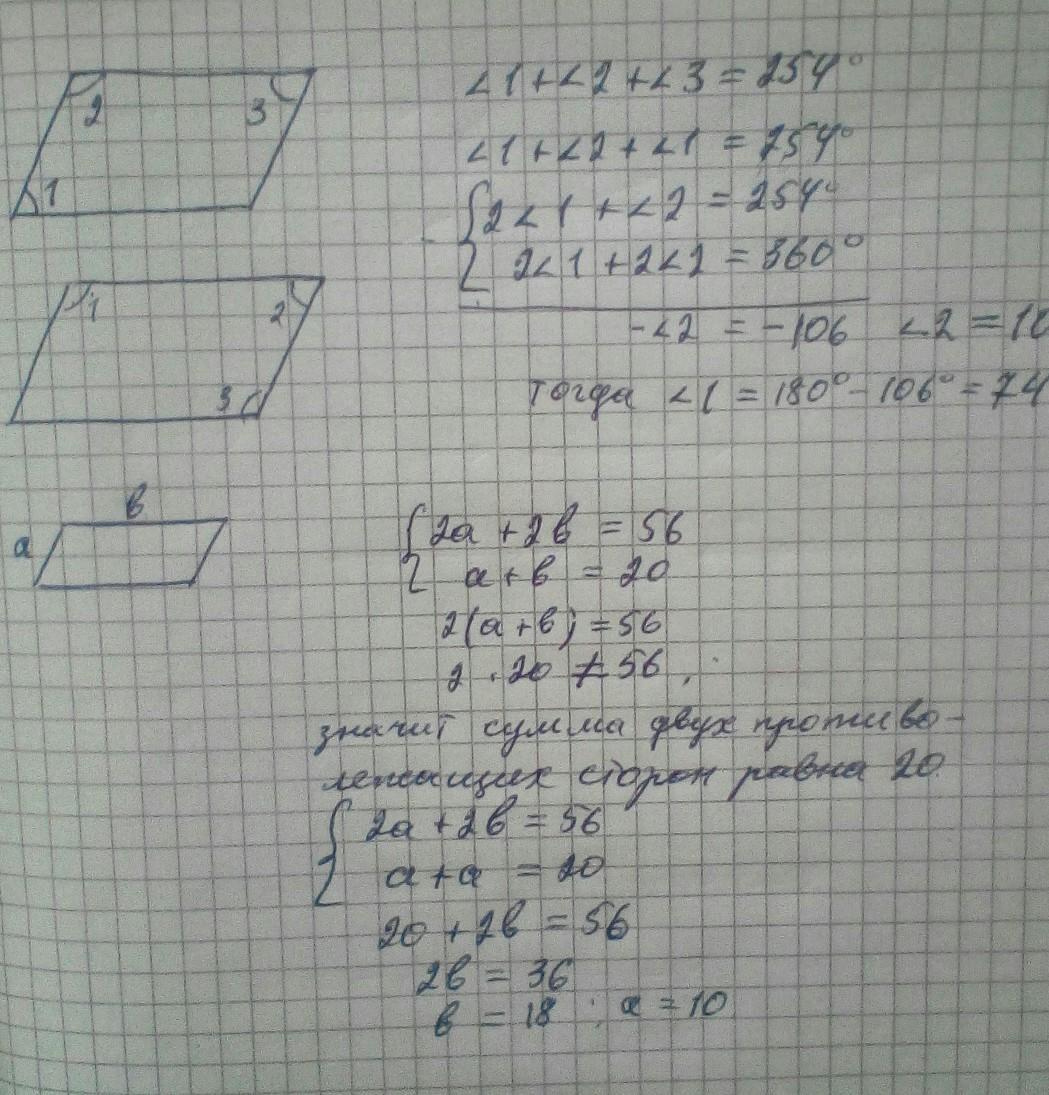 2 3
1
∠1 + ∠2 + ∠3 = 254°
∠1 + ∠2 + ∠1 = 254°
2∠1 + ∠2 = 254°
2∠1 + 2∠2 = 360°
-∠2 = -106 ∠2 = 10
тогда ∠1 = 180° - 106° = 74
1 2
3
в
а
2а + 2в = 56
а + в = 20
2(а + в) = 56
2 · 20 ≠ 56,
значит сумма двух противо-
лежащих сторон равна 20.
2а + 2в = 56
а + а = 20
20 + 2в = 56
2в = 36
в = 18 ; а = 10